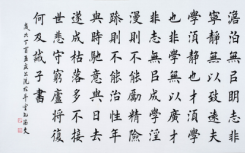 澹泊無以明志非
寧靜無以致遠夫
學須靜也才須學
也非學無以廣才
非志無以成學淫
慢則不能勵精險
躁則不能治性年
與時馳意與日去
遂成枯落多不接
世悲守窮廬將復
何及誡子書